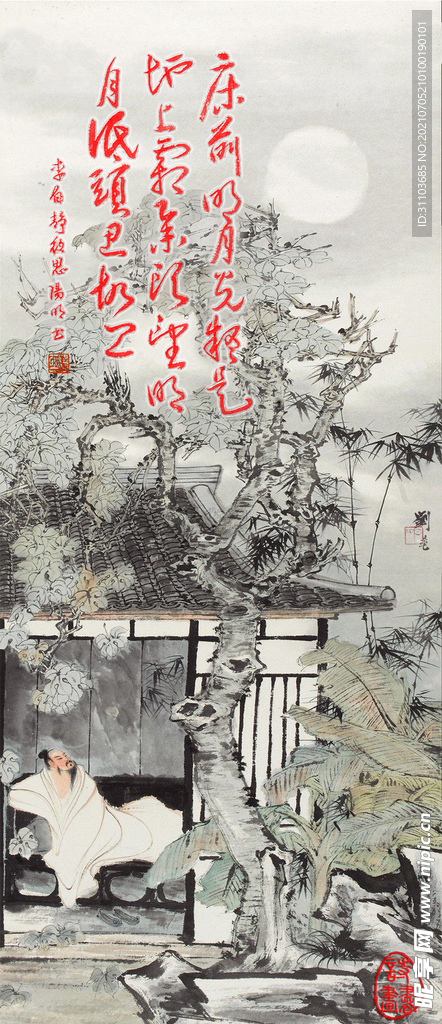 床前明月光疑是
地上霜舉頭望明
月低頭思故乡
李白靜夜思陽明书
劉
ID:31103685 NO:20210705210100190101
昵享网 www.nipic.cn